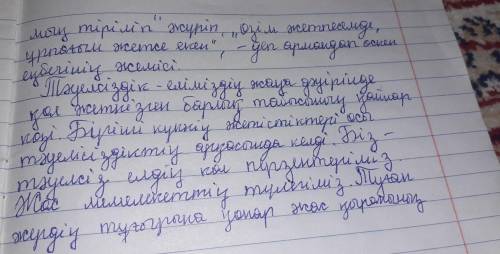 мың тіріліп" жүріп, "өзім жетпесемде,
ұрпағым жетсе екен", - деп армандап өскен
еңбегінің жемісі.
Тәуелсіздік - еліміздің жаңа дәуірінде
қол жеткізген барлық табысының қайнар
көзі. Бүгінгі күннің жетістіктері осы
тәуелсіздіктің арқасында келді. Біз -
тәуелсіз елдің көп перзентеріміз.
Жас мемлекеттің түлегіміз. Туған
жердің тұғырына қонар жас қыранының